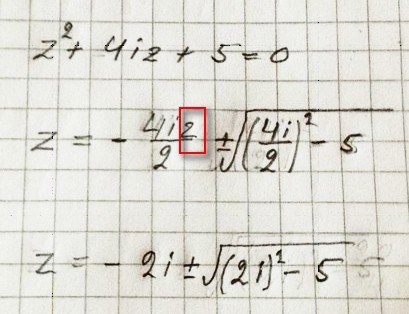 z² + 4iz + 5 = 0
z = - 4iz/2 ± √((4i/2)² - 5
z = - 2i ± √((2i)² - 5